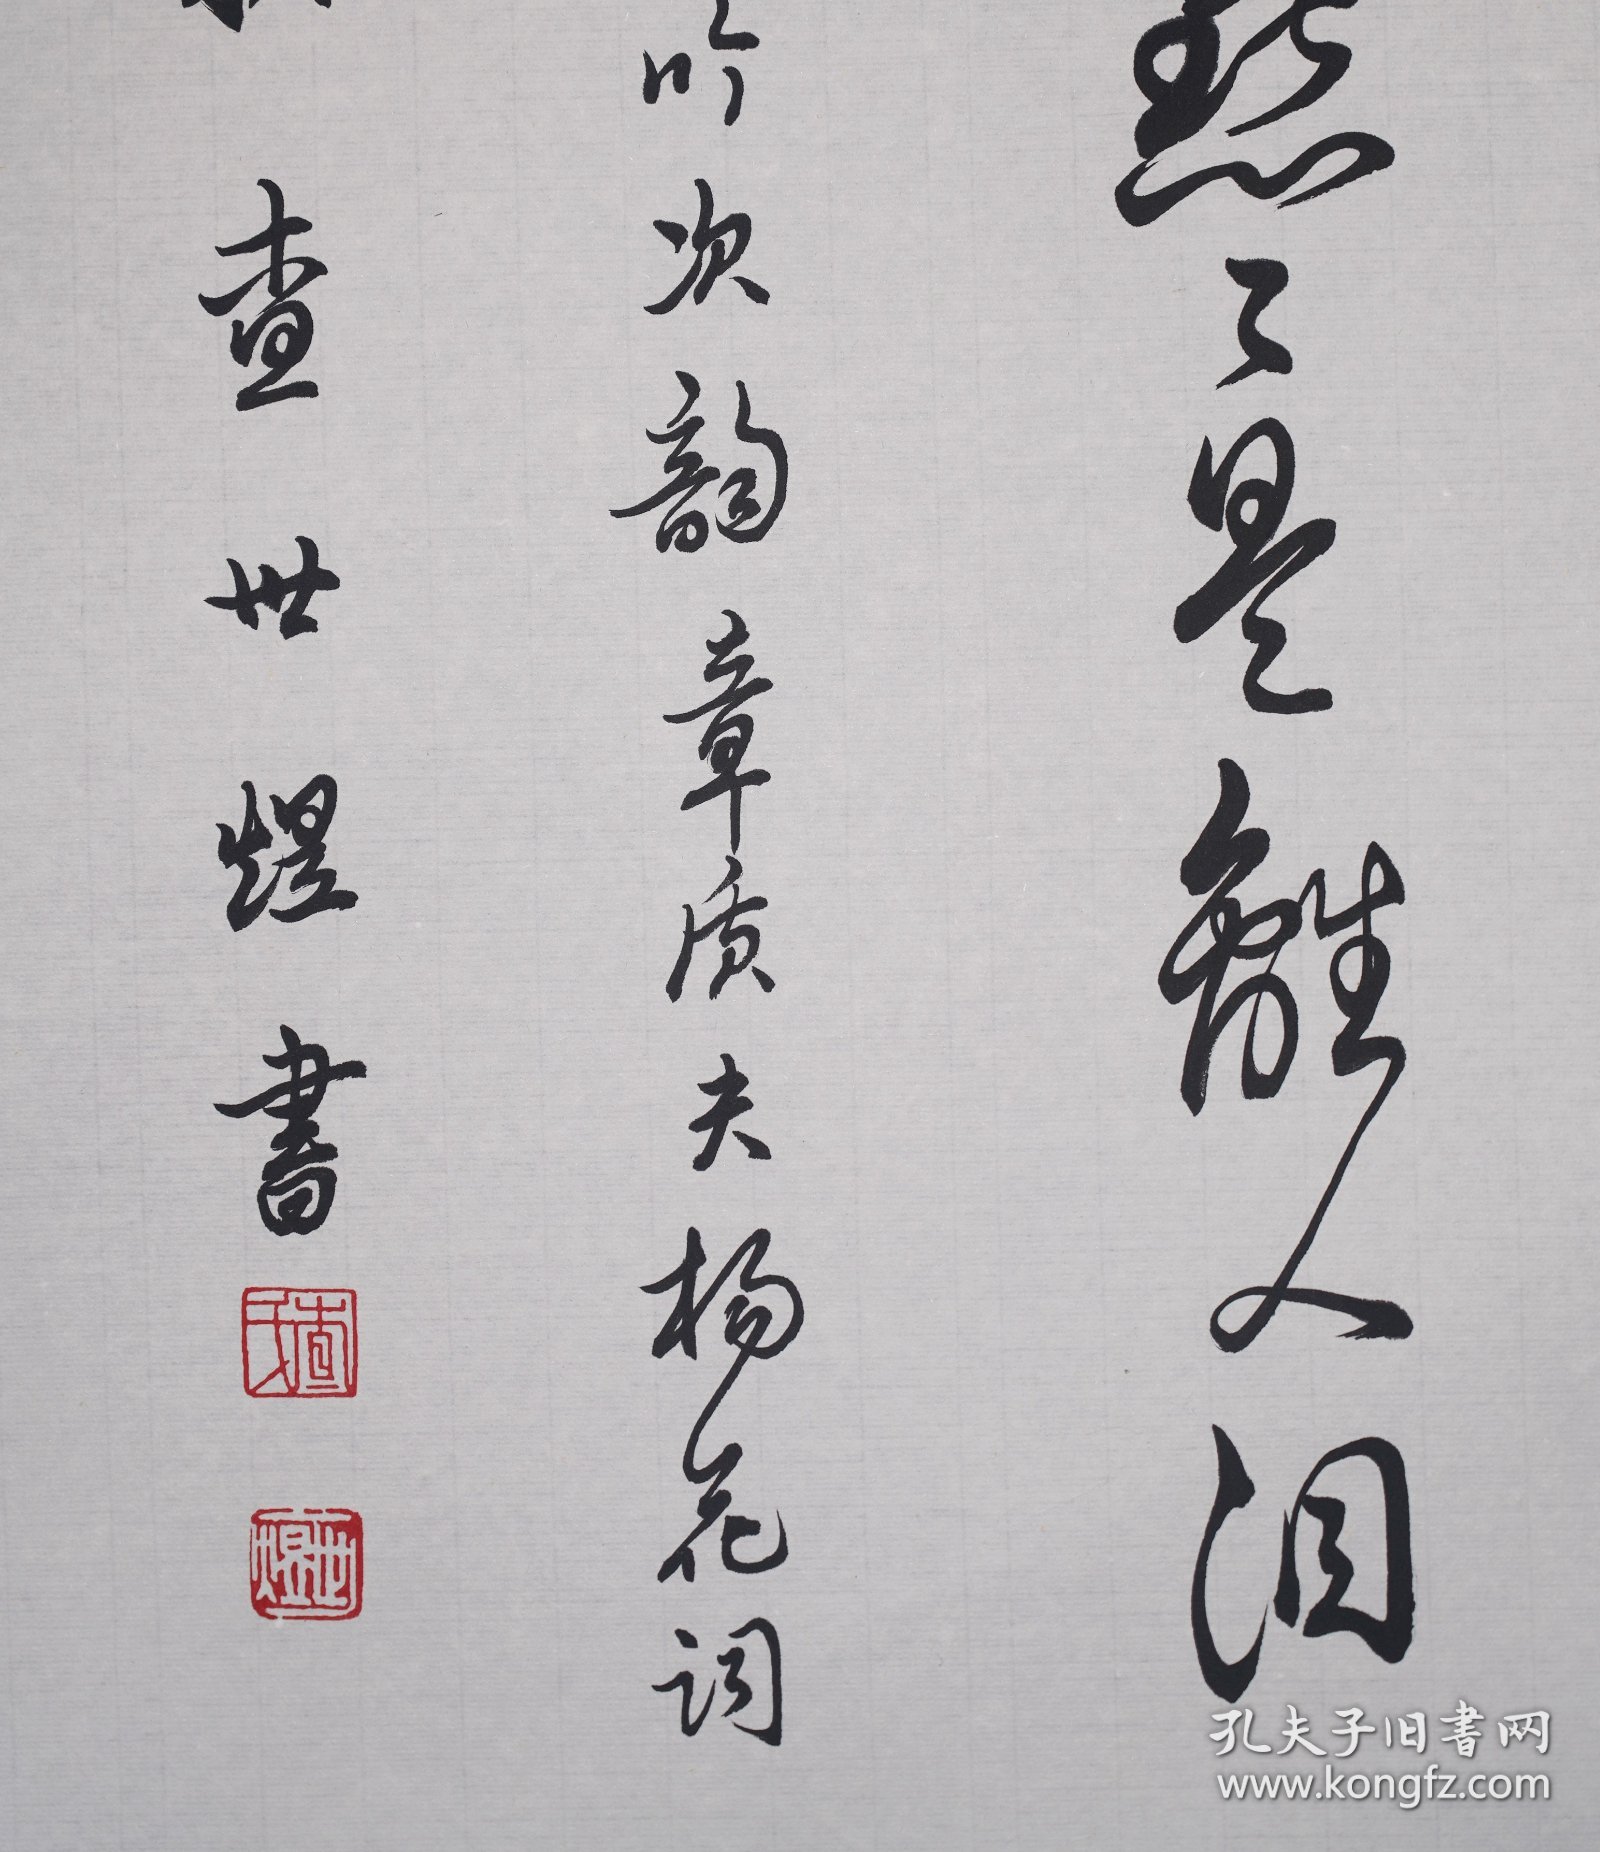 點々是離人泪
吟次韵章质夫杨花词
查世煜書
查氏
世煜
孔夫子旧书网
www.kongfz.com